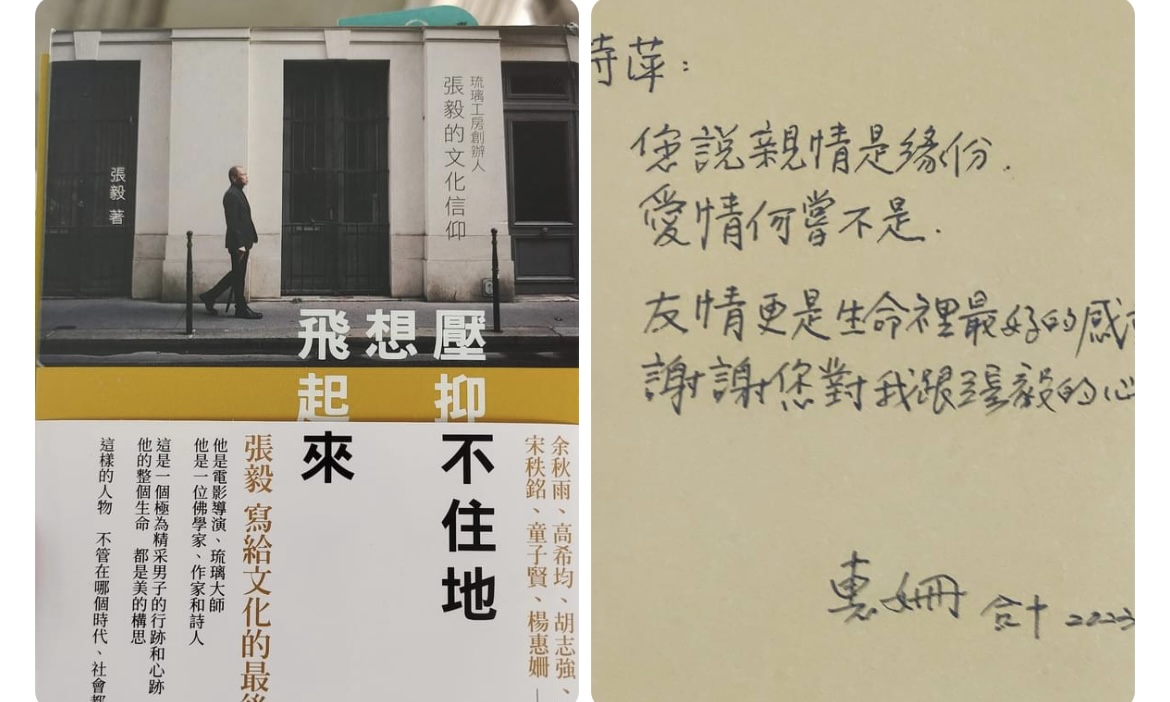 琉璃工房創辦人
張毅的文化信仰
張毅 著
壓抑不住地
想
飛起來
余秋雨、高希均、胡志強、
宋秩銘、童子賢、楊惠姍
張毅 寫給文化的最後
他是電影導演、琉璃大師
他是一位佛學家、作家和詩人
這是一個極為精采男子的行跡和心跡
他的整個生命 都是美的構思
這樣的人物 不管在哪個時代、社會都
萍：
您說親情是緣份.
愛情何嘗不是.
友情更是生命裡最好的感
謝謝您對我跟張毅的心
惠姍 合十 2023